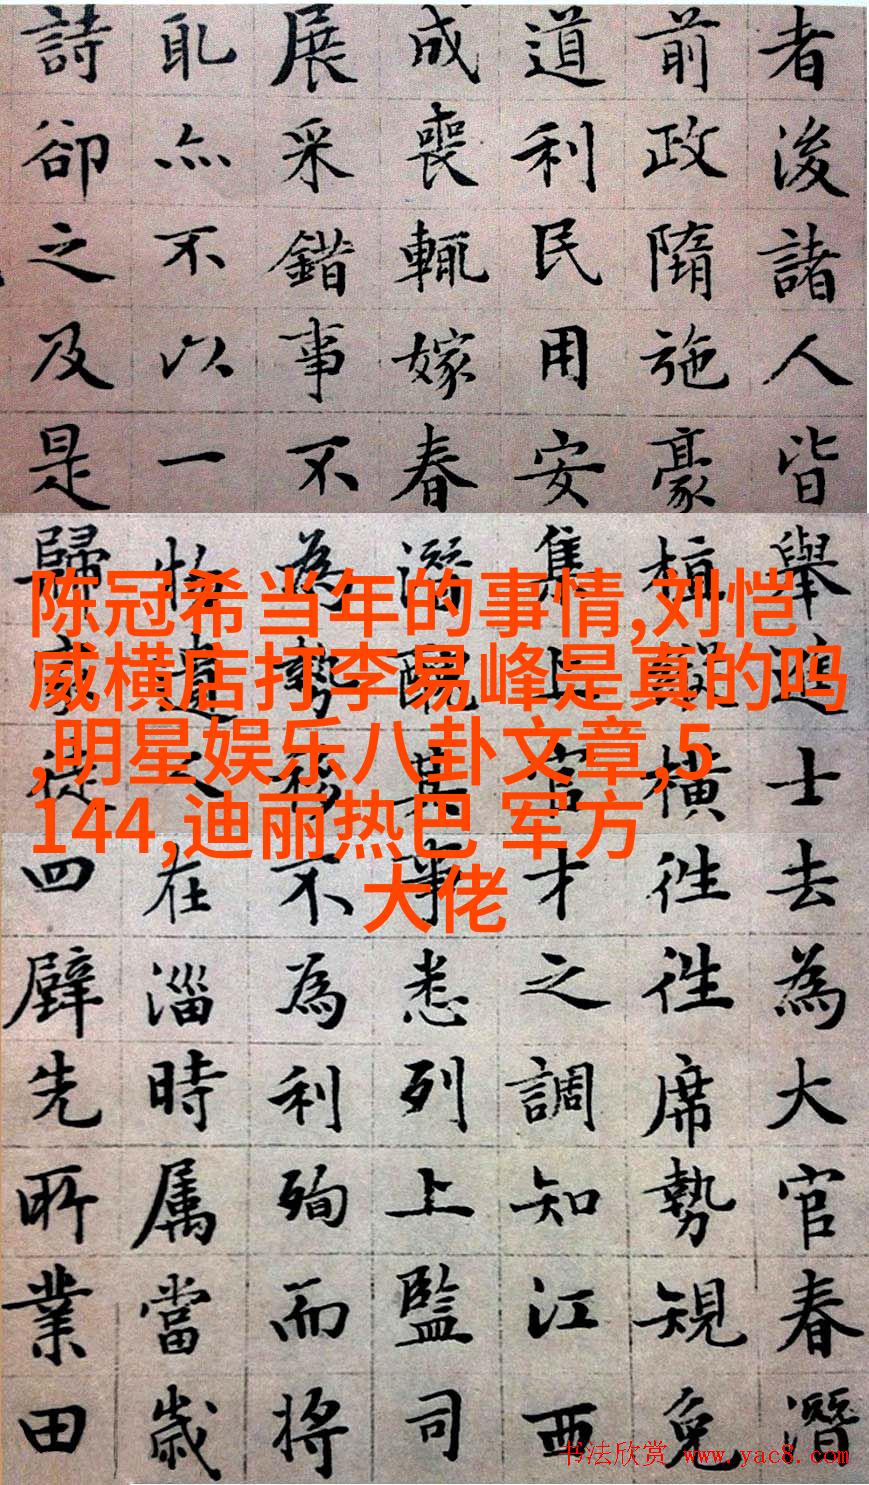 者後諸人皆舉進士去為大官春潛
前政隋施豪植橫往往席勢規免
道利民用安集上官才之調知江西
成喪輒嫁春潛事悉列上監司
展采錯事不為勢移不為利殉而將
耴亦不以一物遺人在淄時属當歲
詩卻之及是歸家徒四壁先所業田
陈冠希当年的事情,刘恺
威横店打李易峰是真的吗
,明星娱乐八卦文章,5
144,迪丽热巴 军方
大佬
书法欣赏 www.yac8.com